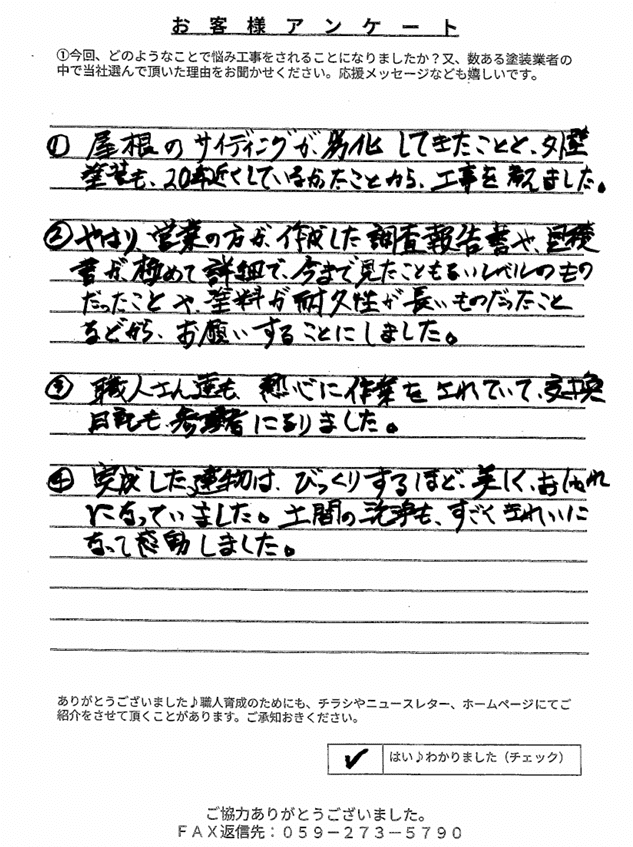 お客様アンケート
①今回、どのようなことで悩み工事をされることになりましたか？又、数ある塗装業者の
中で当社選んで頂いた理由をお聞かせください。応援メッセージなども嬉しいです。
① 屋根のサイディングが、劣化してきたことと、外壁
塗装も、20年近くしていなかったことから、工事を考えました。
② やはり営業の方が、作成した調査報告書や、見積
書が極めて詳細で、今まで見たこともないレベルのもの
だったことや、塗料が耐久性が長いものだったこと
などから、お願いすることにしました。
③ 職人さん達も、熱心に作業をされていて、交換
日記も参考になりました。
④ 完成した建物は、びっくりするほど、美しく、おしゃれ
になっていました。土間の洗浄も、すごくきれいに
なって感動しました。
ありがとうございました♪職人育成のためにも、チラシやニュースレター、ホームページにてご
紹介をさせて頂くことがあります。ご承知おきください。
✓ はい♪わかりました（チェック）
ご協力ありがとうございました。
ＦＡＸ返信先：０５９－２７３－５７９０